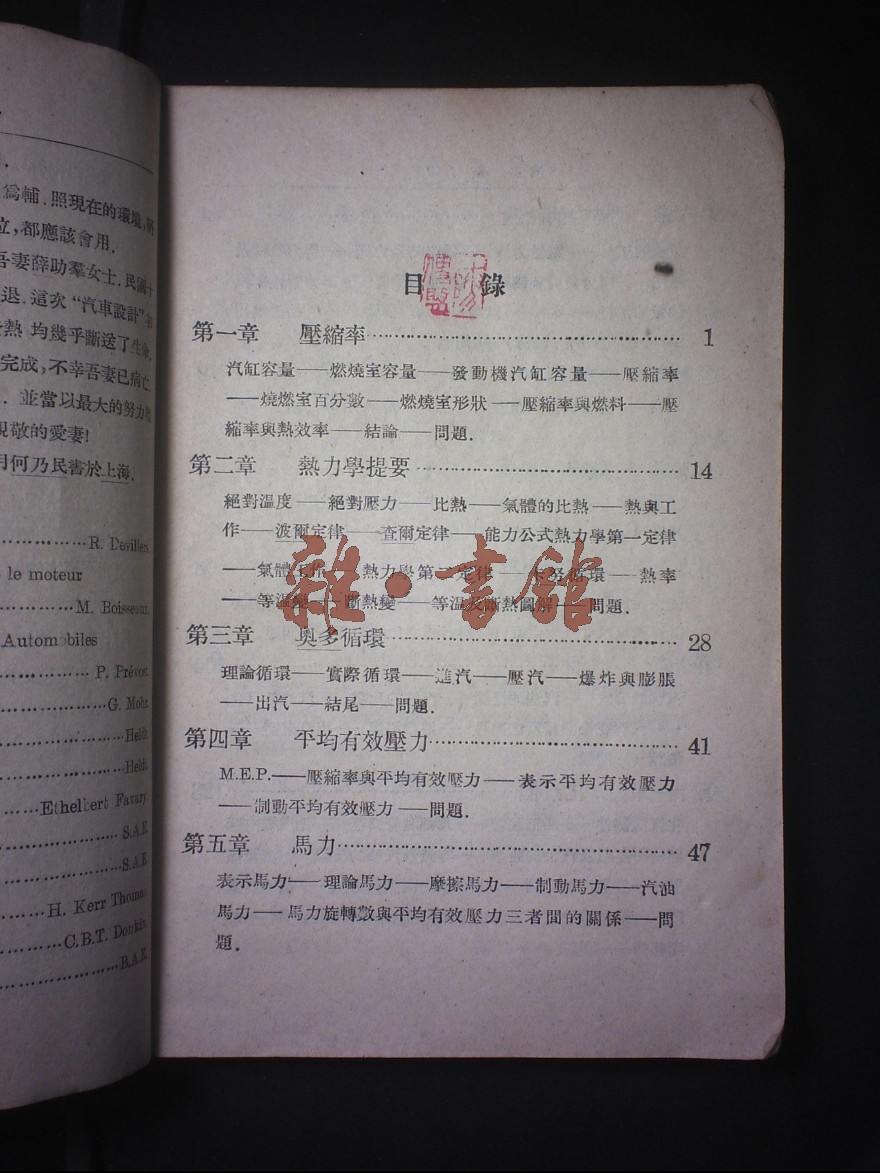 爲輔.照現在的環境,
立,都應該會用.
吾妻薛助羣女士.民國十
退.這次“汽車設計”
熱 均幾乎斷送了生命.
完成,不幸吾妻已病亡
. 並當以最大的努力
親敬的愛妻!
月何乃民書於上海.
R. Devillers
le moteur
M. Boisseaux
Automobiles
P. Prévost
G. Mohr
Heldt
Heldt
Ethelbert Favary
S.A.E.
S.A.E.
H. Kerr Thomas
C.B.T. Donkin
B.A.E.
目錄
第一章 壓縮率 1
汽缸容量——燃燒室容量——發動機汽缸容量——壓縮率
——燒燃室百分數——燃燒室形狀——壓縮率與燃料——壓
縮率與熱效率——結論——問題.
第二章 熱力學提要 14
絕對温度——絕對壓力——比熱——氣體的比熱——熱與工
作——波爾定律——查爾定律——能力公式熱力學第一定律
——氣體工作——熱力學第二定律——卡努循環——熱率
——等温變——斷熱變——等温及斷熱圖解——問題.
第三章 奥多循環 28
理論循環——實際循環——進汽——壓汽——爆炸與膨脹
——出汽——結尾——問題.
第四章 平均有效壓力 41
M.E.P.——壓縮率與平均有效壓力——表示平均有效壓力
——制動平均有效壓力——問題.
第五章 馬力 47
表示馬力——理論馬力——摩擦馬力——制動馬力——汽油
馬力——馬力旋轉數與平均有效壓力三者間的關係——問
題.
雜·書館